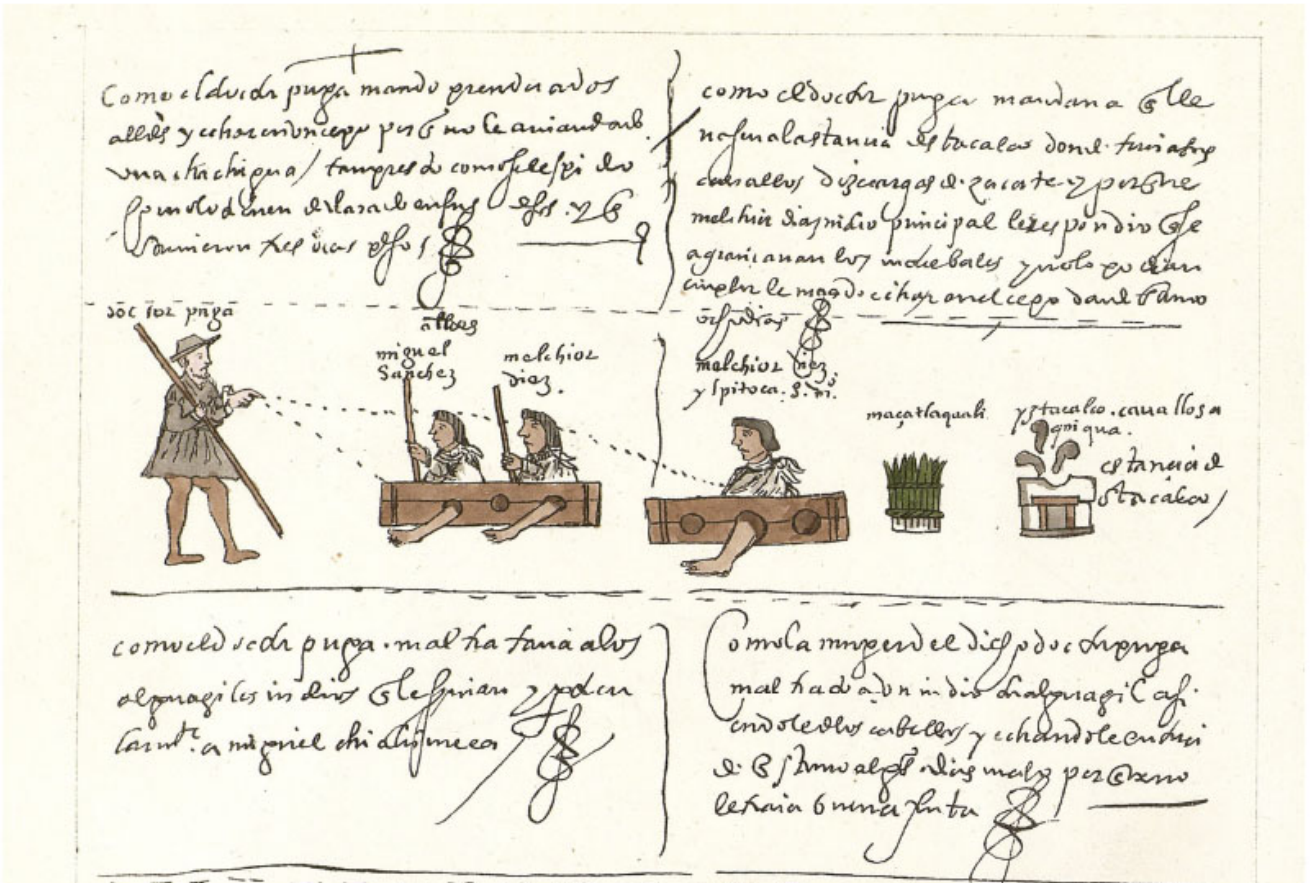 Como el doctor puga mando prender a dos
alldes y echar en un cepo por q̃ no le avian dado
una chichigua
y q̃
tres dias presos
como el doctor puga mandava q̃ lle
vasen a la estancia de stacalco donde tenia sus
cavallos diez cargas de zacate. y por que
melchior diaz indio principal le respondio q̃ se
agraviavan los macehales y no lo podian
cunplir le mando echar en el cepo donde estuvo
dias
doctor puga
alldes
miguel
sanchez
melchior
diez.
melchior diez
maçatlaquali.
yztacalco. cavallos
estancia de
stacalco
como el doctor puga. mal tratava a los
alguaziles indios q̃ le servian y
a miguel chichimeca
Como la muger del dicho doctor puga
mal trato a un indio alguazil asi
endole de los cabellos y echandole en
de q̃ estuvo algs dias malo por q̃ no
le traia buena fruta